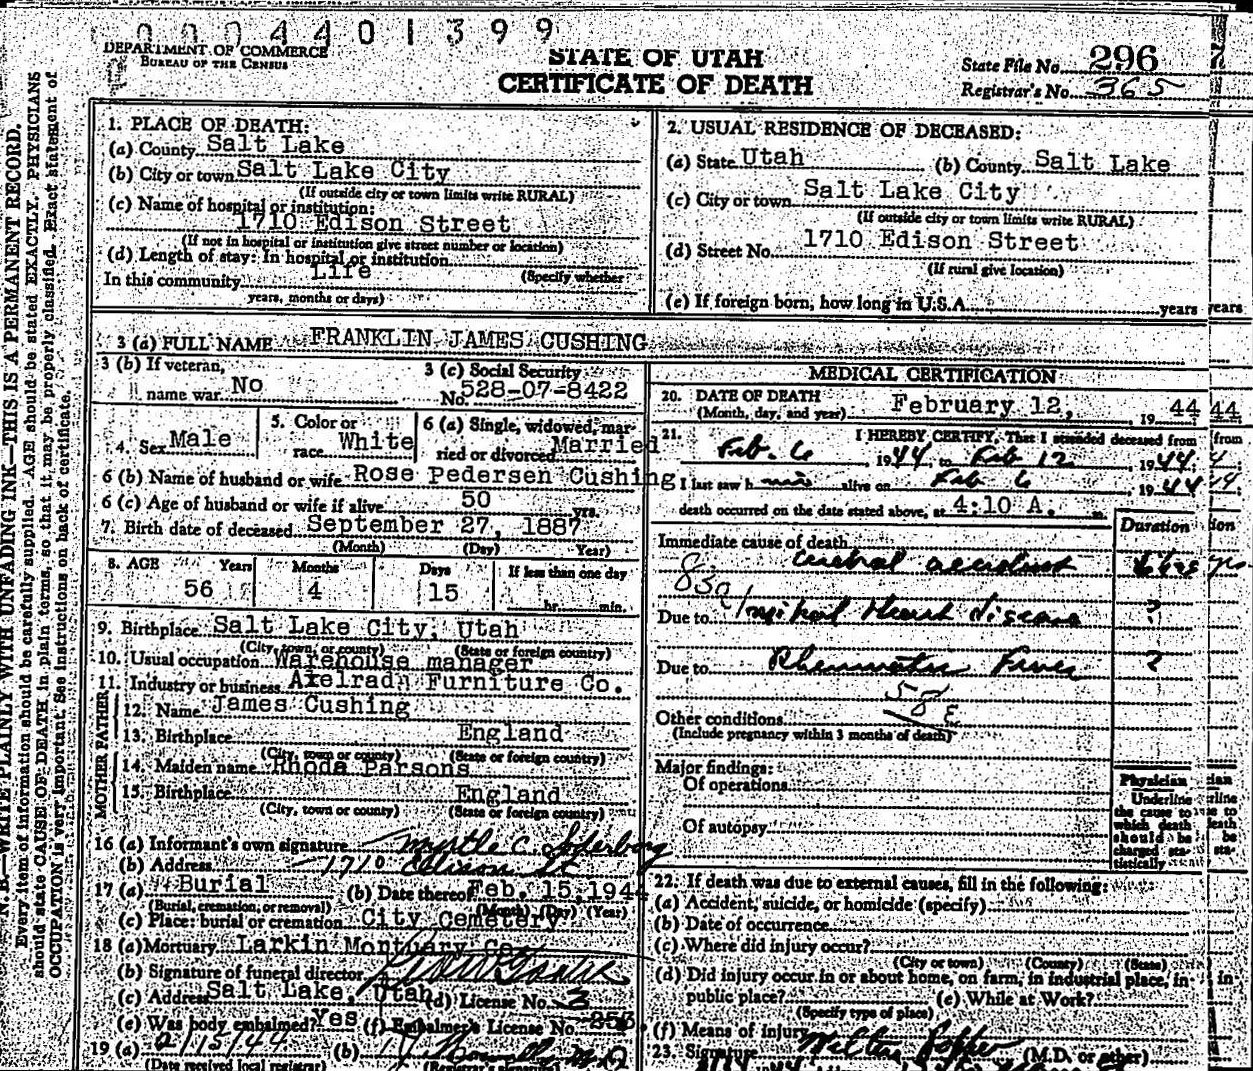 0 0 0 4 4 0 1 3 9 9
DEPARTMENT OF COMMERCE
BUREAU OF THE CENSUS
STATE OF UTAH
CERTIFICATE OF DEATH
State File No. 296
Registrar's No. 365
N. B.—WRITE PLAINLY WITH UNFADING INK—THIS IS A PERMANENT RECORD.
Every item of information should be carefully supplied. AGE should be stated EXACTLY. PHYSICIANS
should state CAUSE OF DEATH in plain terms, so that it may be properly classified. Exact statement of
OCCUPATION is very important. See instructions on back of certificate.
1. PLACE OF DEATH:
(a) County Salt Lake
(b) City or town Salt Lake City
(If outside city or town limits write RURAL)
(c) Name of hospital or institution:
1710 Edison Street
(If not in hospital or institution give street number or location)
(d) Length of stay: In hospital or institution
(Specify whether
In this community Life
years, months or days)
2. USUAL RESIDENCE OF DECEASED:
(a) State Utah (b) County Salt Lake
(c) City or town Salt Lake City
(If outside city or town limits write RURAL)
(d) Street No. 1710 Edison Street
(If rural give location)
(e) If foreign born, how long in U.S.A. years years
3 (a) FULL NAME FRANKLIN JAMES CUSHING
3 (b) If veteran,
name war No
3 (c) Social Security
No. 528-07-8422
4. Sex Male
5. Color or
race White
6 (a) Single, widowed, mar-
ried or divorced Married
6 (b) Name of husband or wife Rose Pedersen Cushing
6 (c) Age of husband or wife if alive 50 yrs.
7. Birth date of deceased September 27, 1887
(Month) (Day) Year)
8. AGE Years Months Days If less than one day
56 4 15 hr. min.
9. Birthplace Salt Lake City, Utah
(City, town, or county) (State or foreign country)
10. Usual occupation Warehouse manager
11. Industry or business Axelradn Furniture Co.
MOTHER FATHER
12. Name James Cushing
13. Birthplace England
(City, town or county) (State or foreign country)
14. Maiden name Rhoda Parsons
15. Birthplace England
(City, town or county) (State or foreign country)
16 (a) Informant's own signature Myrtle C. Soderborg
(b) Address 1710 Edison St
17 (a) Burial (b) Date thereof Feb. 15, 1944
(Burial, cremation, or removal) (Month) (Day) (Year)
(c) Place: burial or cremation City Cemetery
18 (a) Mortuary Larkin Mortuary Co.
(b) Signature of funeral director
(c) Address Salt Lake, Utah (d) License No. 3
(e) Was body embalmed? Yes (f) Embalmer's License No. 253
19 (a) 2/15/44 (b)
(Date received local registrar) (Registrar's signature)
MEDICAL CERTIFICATION
20. DATE OF DEATH
(Month, day, and year) February 12, , 19 44 44
21. I HEREBY CERTIFY, That I attended deceased from from
Feb. 6 1944, to Feb 12, 1944;
I last saw him alive on Feb 6, 1944
death occurred on the date stated above, at 4:10 A. m.
Duration
Immediate cause of death
Cerebral accident
830
Due to Mitral Heart disease ?
Due to Rheumatic Fever ?
58 E
Other conditions
(Include pregnancy within 3 months of death)
Major findings:
Of operations
Of autopsy
Physician
Underline
the cause to
which death
should be
charged sta-
tistically
22. If death was due to external causes, fill in the following:
(a) Accident, suicide, or homicide (specify)
(b) Date of occurrence
(c) Where did injury occur?
(City or town) (County) (State)
(d) Did injury occur in or about home, on farm, in industrial place, in in
public place? (e) While at Work?
(Specify type of place)
(f) Means of injury
23. Signature (M.D. or other)